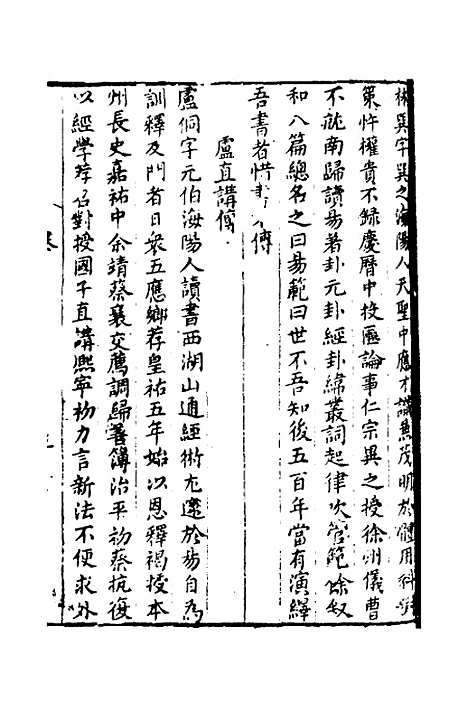 林巽字巽之海陽人天聖中應才識兼茂明於體用科對
策忤權貴不錄慶曆中投匭論事仁宗異之授徐州儀曹
不就南歸讀易著卦元卦經卦緯叢詞起律吹管範餘叙
和八篇總名之曰易範曰世不吾知後五百年當有演繹
吾書者惜書不傳
盧直講傳
盧侗字元伯海陽人讀書西湖山通經術尤邃於易自為
訓釋及門者日衆五應鄉荐皇祐五年始以恩釋褐授本
州長史嘉祐中余靖蔡襄交薦調歸善簿治平初蔡抗復
以經學荐召對授國子直講熙寧初力言新法不便求外